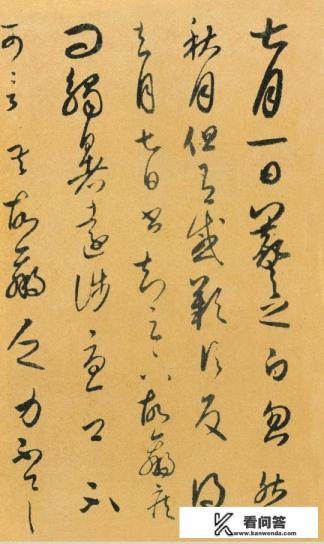 七月一日羲之白忽然
秋月但有感歎信反得
去月七日書知足下故羸疾
問觸暑遠涉憂卿不
可言吾故羸乏力不具
K 看问答
www.kanwenda.com